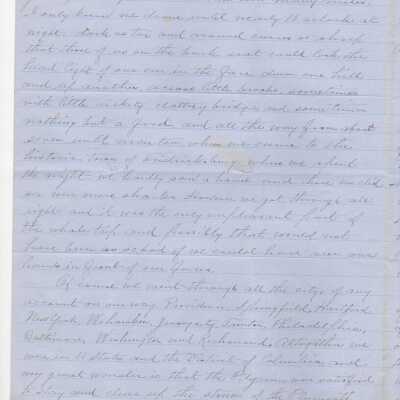 I only know we drove until nearly 11 o'clock at
night. Such ruts and around curves so sharp
that three of us on the back seat could look the
head light of our car in the face down one hill
and up another, across little brooks, sometimes
with little rickety clattery bridges and sometimes
nothing but a ford, and all the way from about
seven until nine ten when we came to the
historic town of Fredericksburg where we spent
the night we hardly saw a house and there we did
see were mere shacks. However we got through all
right and it was the only unpleasant part of
the whole trip and possibly that would not
have been so bad if we could have seen our
hands in front of our faces.
Of course we went through all the citys of any
account on our way. Providence, Springfield, Hartford
New York, Hoboken, Jersey City, Trenton, Philadelphia,
Baltimore, Washington and Richmond. Altogether we
were in 11 States and the District of Columbia and
my great wonder is that the Pilgrims were satisfied
to stay and clear up the stones of the Plymouth